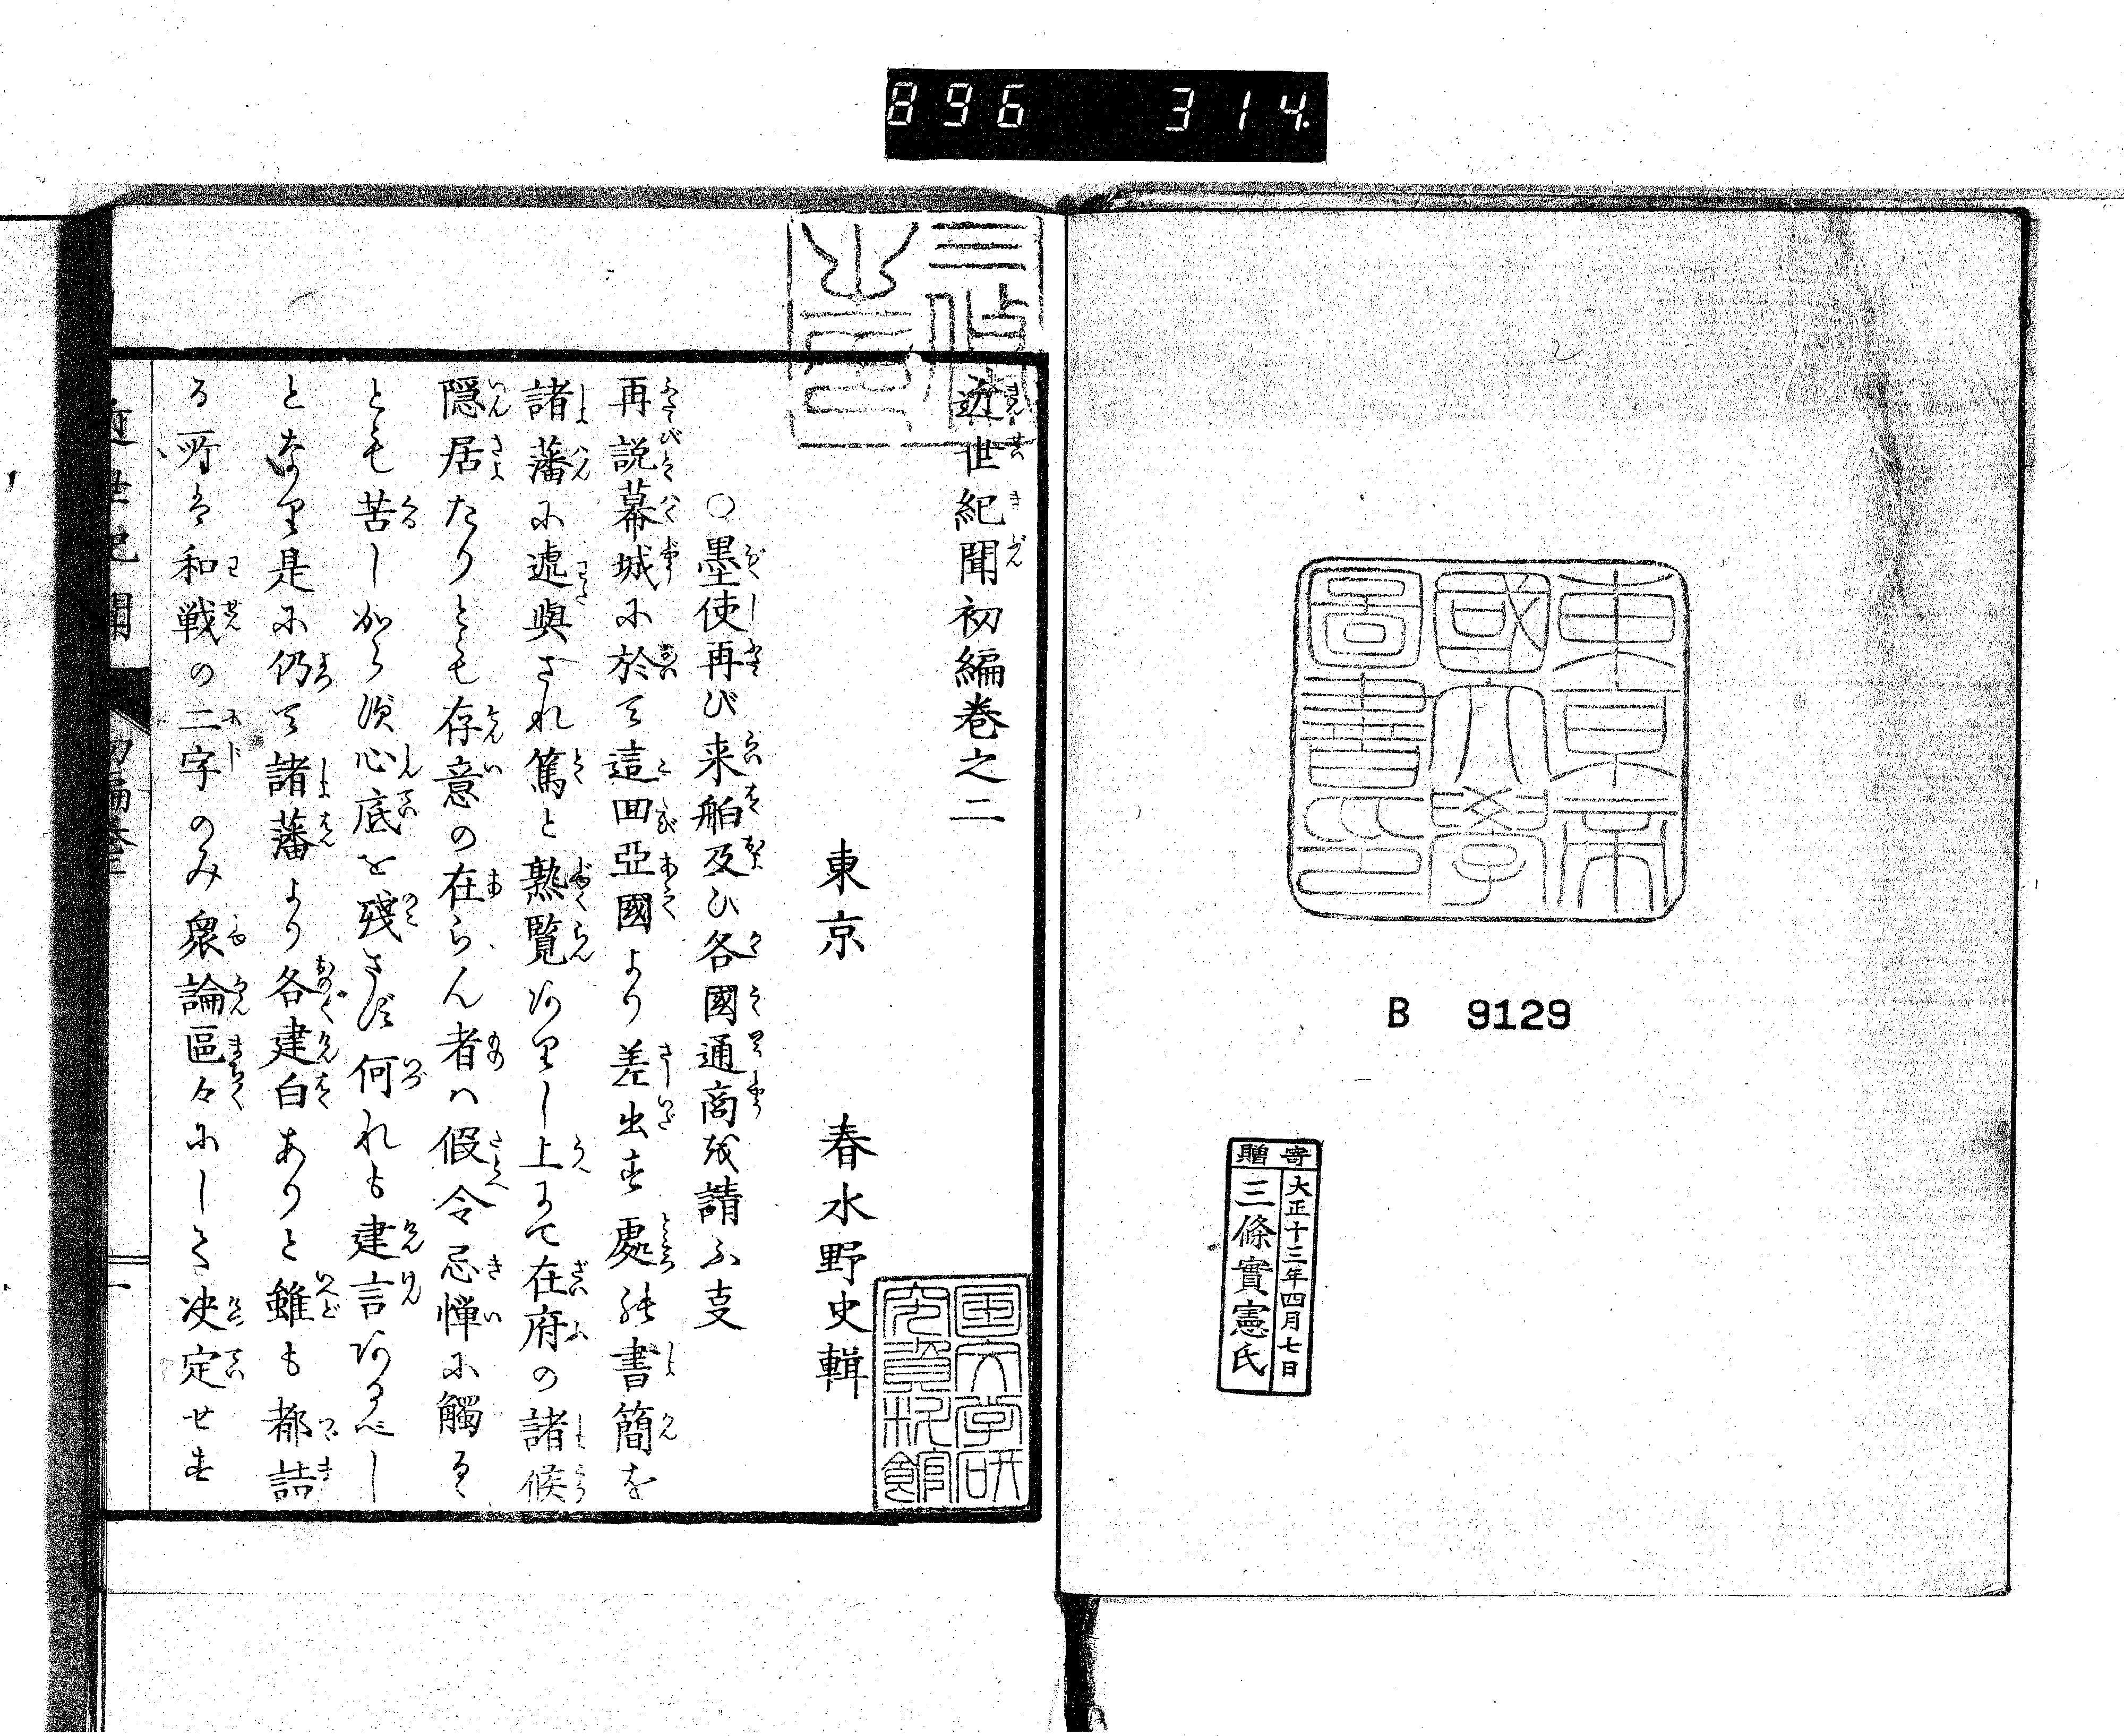 896 314
東京帝
國大學
圖書印
B 9129
寄贈
大正十三年四月七日
三條實憲氏
近世紀聞初編巻之二
東京 春水野史輯
○墨使再び来舶及ひ各國通商を請ふ支
再説幕城に於て這回亞國より差出す處の書簡を
諸藩に逓與され篤と熟覧ありし上にて在府の諸候
隠居たりとも存意の在らん者ハ假令忌憚に觸るゝ
とも苦しからず心底を残さず何れも建言あるべし
となり是に仍て諸藩より各建白ありと雖も都詰
る所は和戦の二字のみ衆論區々にしさ决定せす
国文学研
究資料館
近世紀聞 初編巻二 一